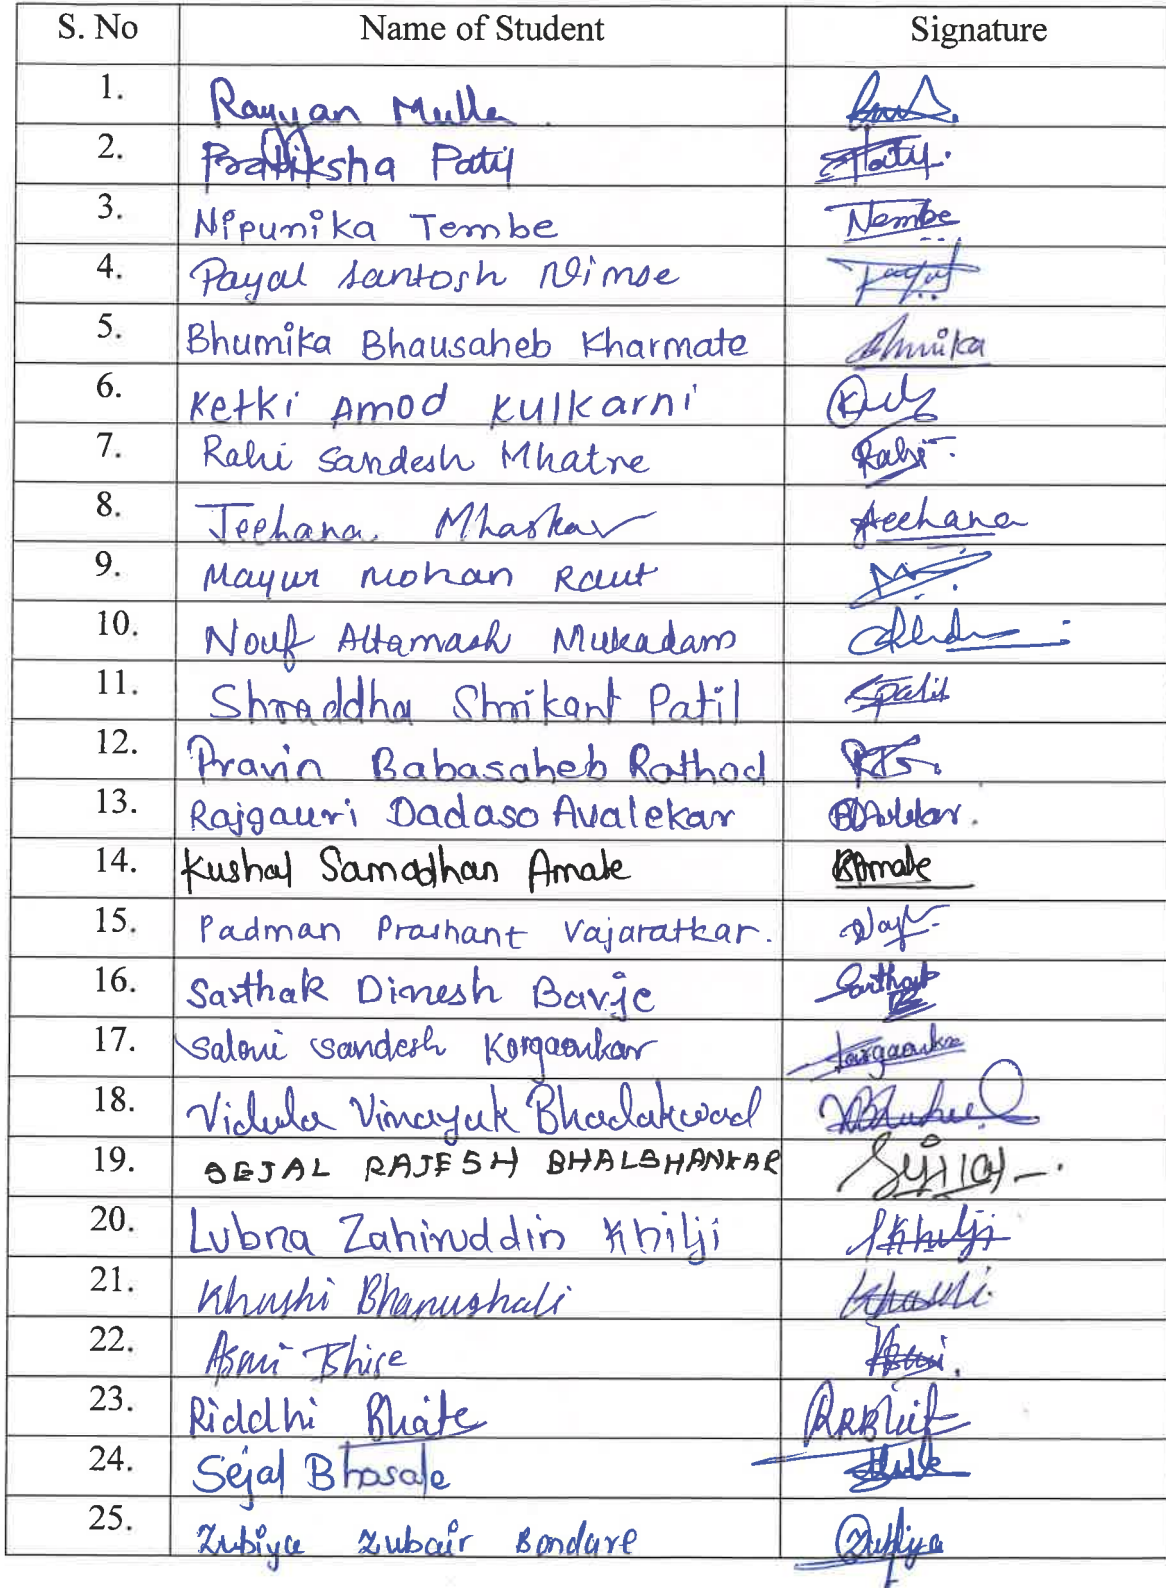 S. No Name of Student Signature
1. Rayyan Mulla
2. Pratiksha Patil Patil.
3. Nipunika Tembe Nembe
4. Payal Santosh Nimse Payal
5. Bhumika Bhausaheb Kharmate Bhumika
6. Ketki Amod Kulkarni
7. Rahi Sandesh Mhatre Rahi
8. Jeehana. Mhaskar Jeehana
9. Mayur Mohan Raut
10. Nouf Altamash Mukadam
11. Shraddha Shrikant Patil SPatil
12. Pravin Babasaheb Rathod
13. Rajgauri Dadaso Avalekar
14. Kushal Samadhan Amale KAmale
15. Padman Prashant Vajaratkar.
16. Sarthak Dinesh Bavje Sarthak
17. Saloni Sandesh Korgaonkar Korgaonkar
18. Vidula Vinayak Bhadakwad
19. SEJAL RAJESH BHALSHANKAR
20. Lubna Zahiruddin Khilji LKhilji
21. Khushi Bhanushali Khushi
22. Asmi Bhise Asmi.
23. Riddhi Bhate
24. Sejal Bhosale
25. Zubiya Zubair Bondare Zubiya